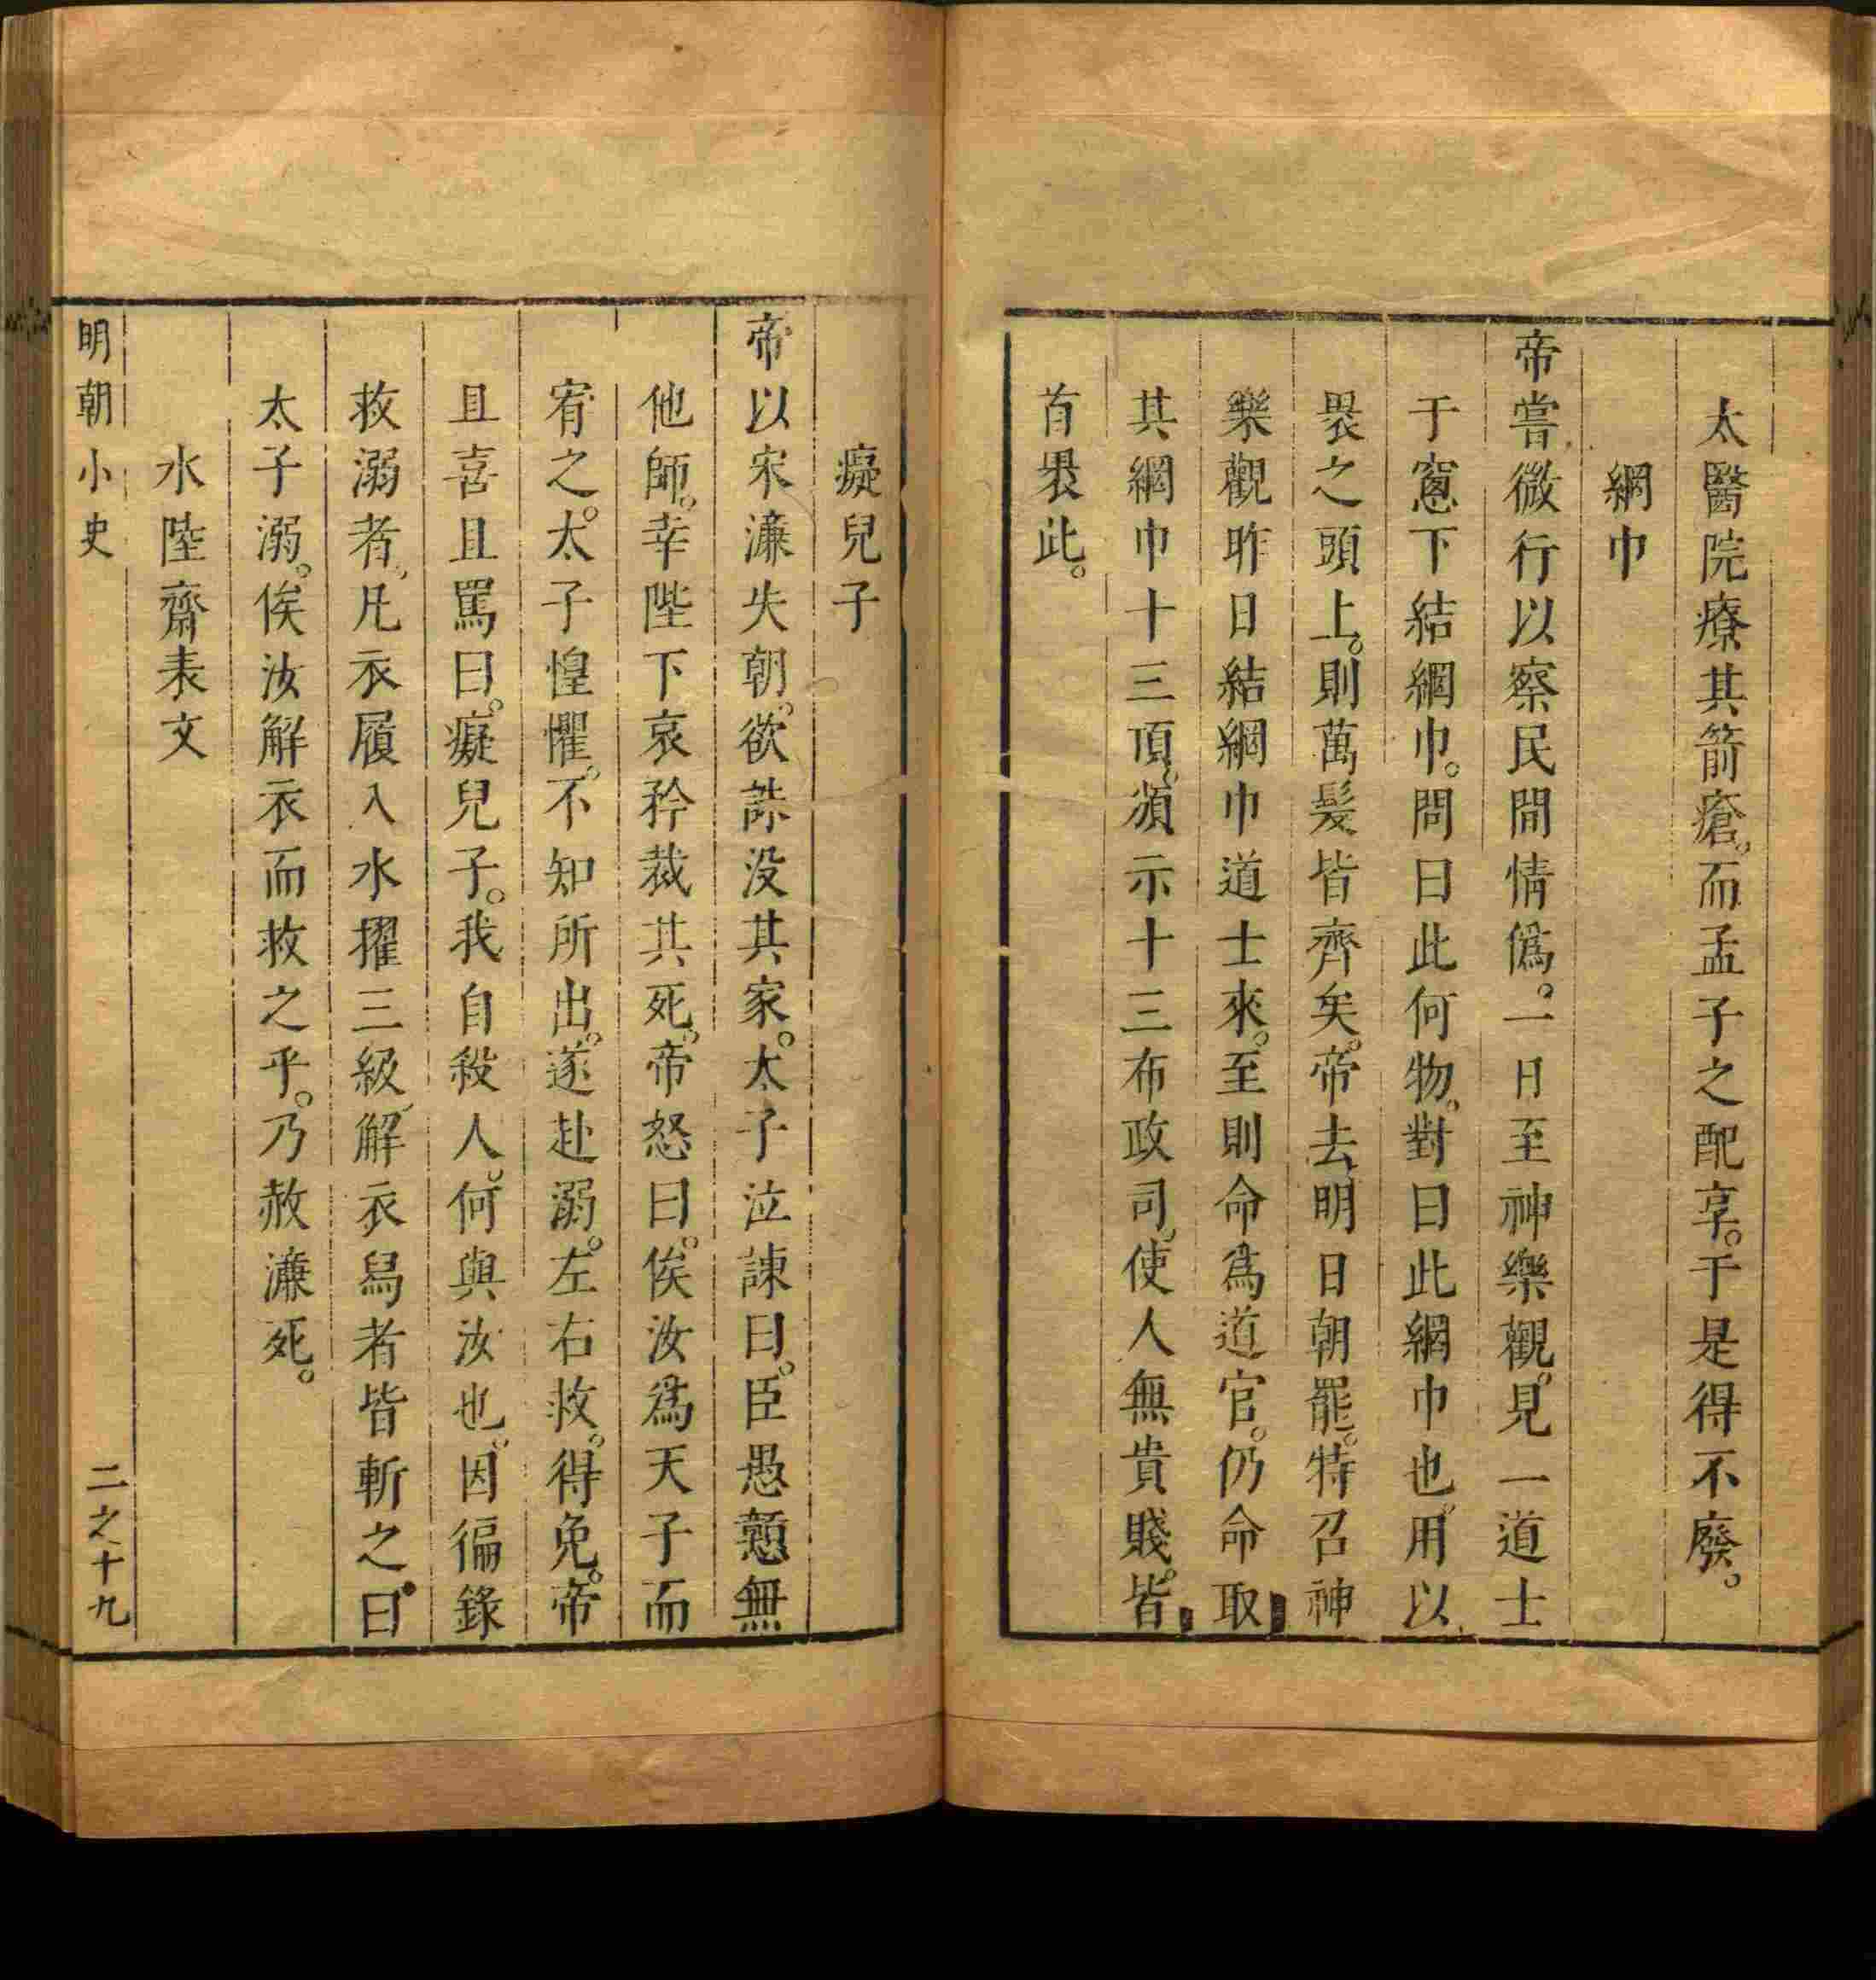 太醫院療其箭瘡。而孟子之配享。于是得不廢。
網巾
帝嘗微行以察民間情僞。一日至神樂觀。見一道士
于窻下結網巾。問曰此何物。對曰此網巾也。用以
裹之頭上。則萬髮皆齊矣。帝去。明日朝罷。特召神
樂觀昨日結網巾道士來。至則命爲道官。仍命取
其網巾十三頂。頒示十三布政司。使人無貴賤。皆
首裹此。
癡兒子
帝以宋濂失朝。欲誅没其家。太子泣諫曰。臣愚戇無
他師。幸陛下哀矜裁其死。帝怒曰。俟汝爲天子而
宥之。太子惶懼。不知所出。遂赴溺。左右救。得免。帝
且喜且罵曰。癡兒子。我自殺人。何與汝也。因徧錄
救溺者。凡衣履入水擢三級。解衣舄者皆斬之。曰
太子溺。俟汝解衣而救之乎。乃赦濂死。
水陸齋表文
明朝小史
二之十九